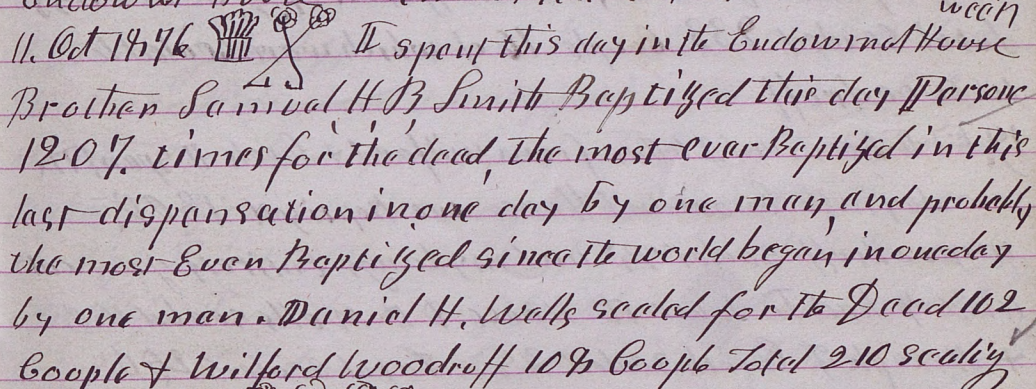 11. Oct 1876 I spent this day in the Endowment House
Brother Samuel H. B. Smith Baptized this day Persons
1207. times for the dead, The most ever Baptized in this
last dispensation in one day by one man, and probably
the most Even Baptized since the world began, in one day
by one man. Daniel H. Wells sealed for the Dead 102
Couple & Wilford Woodruff 108 Couple Total 210 sealig